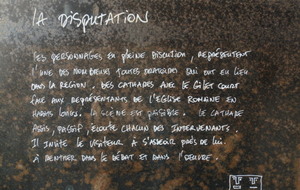 LA DISPUTATION
LES PERSONNAGES EN PLEINE DISCUTION, REPRÉSENTENT
L'UNE DES NOMBREUSES JOUTES ORATOIRES QUI ONT EU LIEU
DANS LA RÉGION. DES CATHARES AVEC LE GILET COURT
FACE AUX REPRÉSENTANTS DE L'EGLISE ROMAINE EN
HABITS LONGS. LA SCÈNE EST PAISIBLE. LE CATHARE
ASSIS, PASSIF, ÉCOUTE CHACUN DES INTERVENANTS.
IL INVITE LE VISITEUR A S'ASSEOIR PRÈS DE LUI.
A RENTRER DANS LE DÉBAT ET DANS L'OEUVRE.